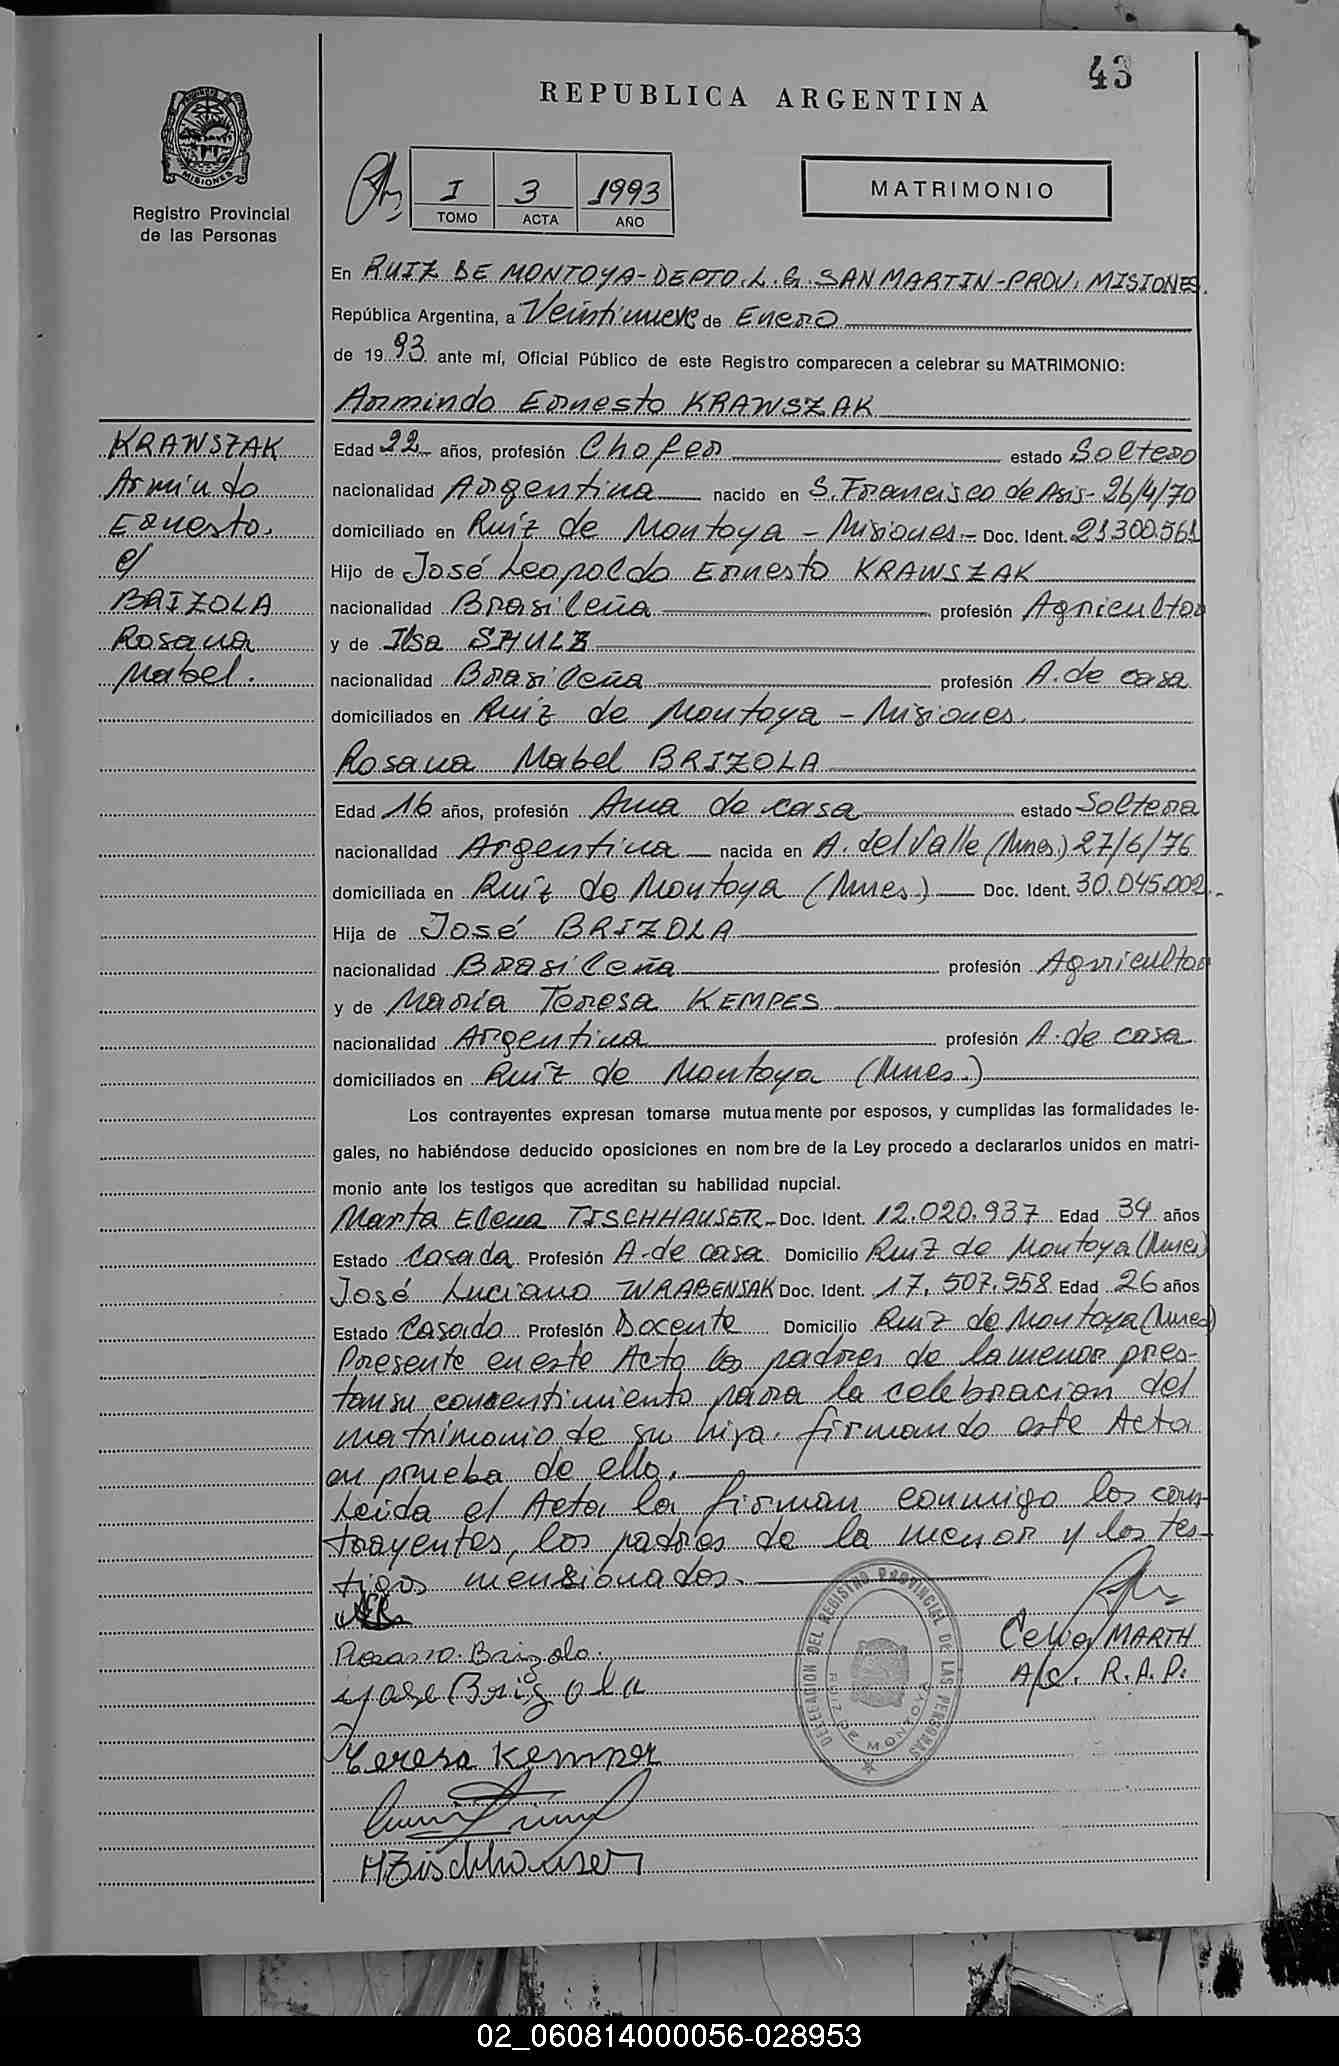 43
REPUBLICA ARGENTINA
MISIONES
Registro Provincial
de las Personas
I 3 1993
TOMO ACTA AÑO
MATRIMONIO
En RUIZ DE MONTOYA-DEPTO. L. G. SAN MARTIN-PROV. MISIONES.
República Argentina, a Veintinueve de Enero
de 1993 ante mí, Oficial Público de este Registro comparecen a celebrar su MATRIMONIO:
Armindo Ernesto KRAWSZAK
KRAWSZAK
Armindo
Ernesto.
c/
BRIZOLA
Rosana
Mabel.
Edad 22 años, profesión Chofer estado Soltero
nacionalidad Argentina nacido en S. Francisco de Asis- 26/4/70
domiciliado en Ruiz de Montoya - Misiones.- Doc. Ident. 21.300.561
Hijo de José Leopoldo Ernesto KRAWSZAK
nacionalidad Brasileña profesión Agricultor
y de Ilsa SHULZ
nacionalidad Brasileña profesión A. de casa
domiciliados en Ruiz de Montoya - Misiones.
Rosana Mabel BRIZOLA
Edad 16 años, profesión Ama de casa estado Soltera
nacionalidad Argentina nacida en A. del Valle (Mnes.) 27/6/76
domiciliada en Ruiz de Montoya (Mnes.) Doc. Ident. 30.045.002.-
Hija de José BRIZOLA
nacionalidad Brasileña profesión Agricultor
y de María Teresa KEMPES
nacionalidad Argentina profesión A. de casa
domiciliados en Ruiz de Montoya (Mnes.)
Los contrayentes expresan tomarse mutuamente por esposos, y cumplidas las formalidades le-
gales, no habiéndose deducido oposiciones en nombre de la Ley procedo a declararlos unidos en matri-
monio ante los testigos que acreditan su habilidad nupcial.
Marta Elena TISCHHAUSER- Doc. Ident. 12.020.937 Edad 34 años
Estado Casada Profesión A. de casa Domicilio Ruiz de Montoya (Mnes)
José Luciano WRABENSAK Doc. Ident. 17.507.558 Edad 26 años
Estado Casado Profesión Docente Domicilio Ruiz de Montoya (Mnes)
Presente en este Acto los padres de la menor pres-
tan su consentimiento para la celebracion del
matrimonio de su hija. firmando este Acta
en prueba de ello.
Leída el Acta la firman conmigo los con-
trayentes, los padres de la menor y los tes-
tigos mensionados.
Rosana Brizola.
Jose Brizola
Teresa Kemper
MTischhauser
DELEGACION DEL REGISTRO PROVINCIAL DE LAS PERSONAS
RUIZ DE MONTOYA
Celia MARTH
A/c. R.A.P.
02_060814000056-028953